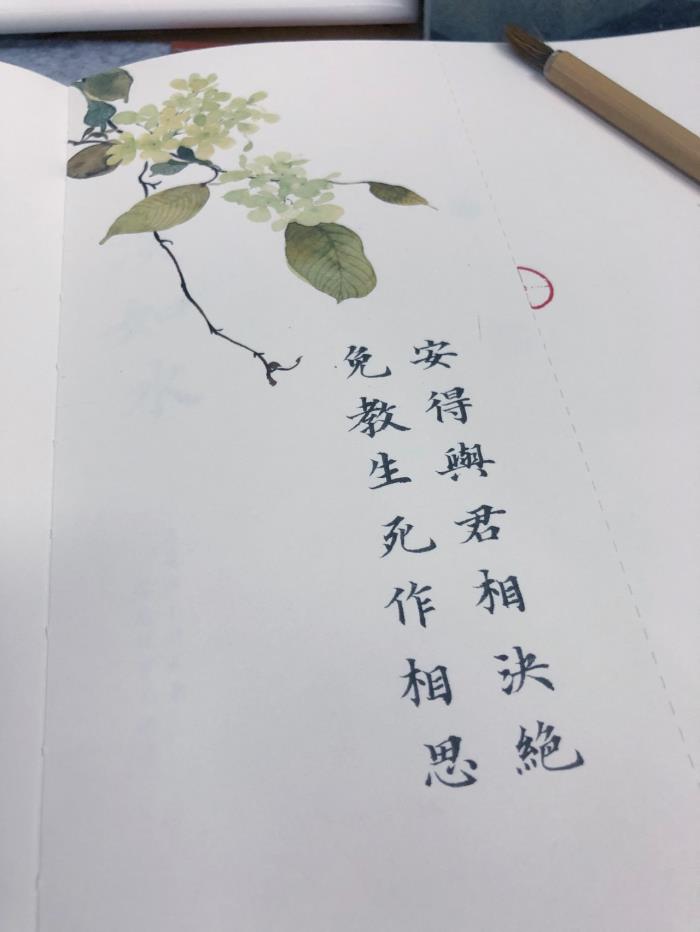 安得與君相決絶
免教生死作相思